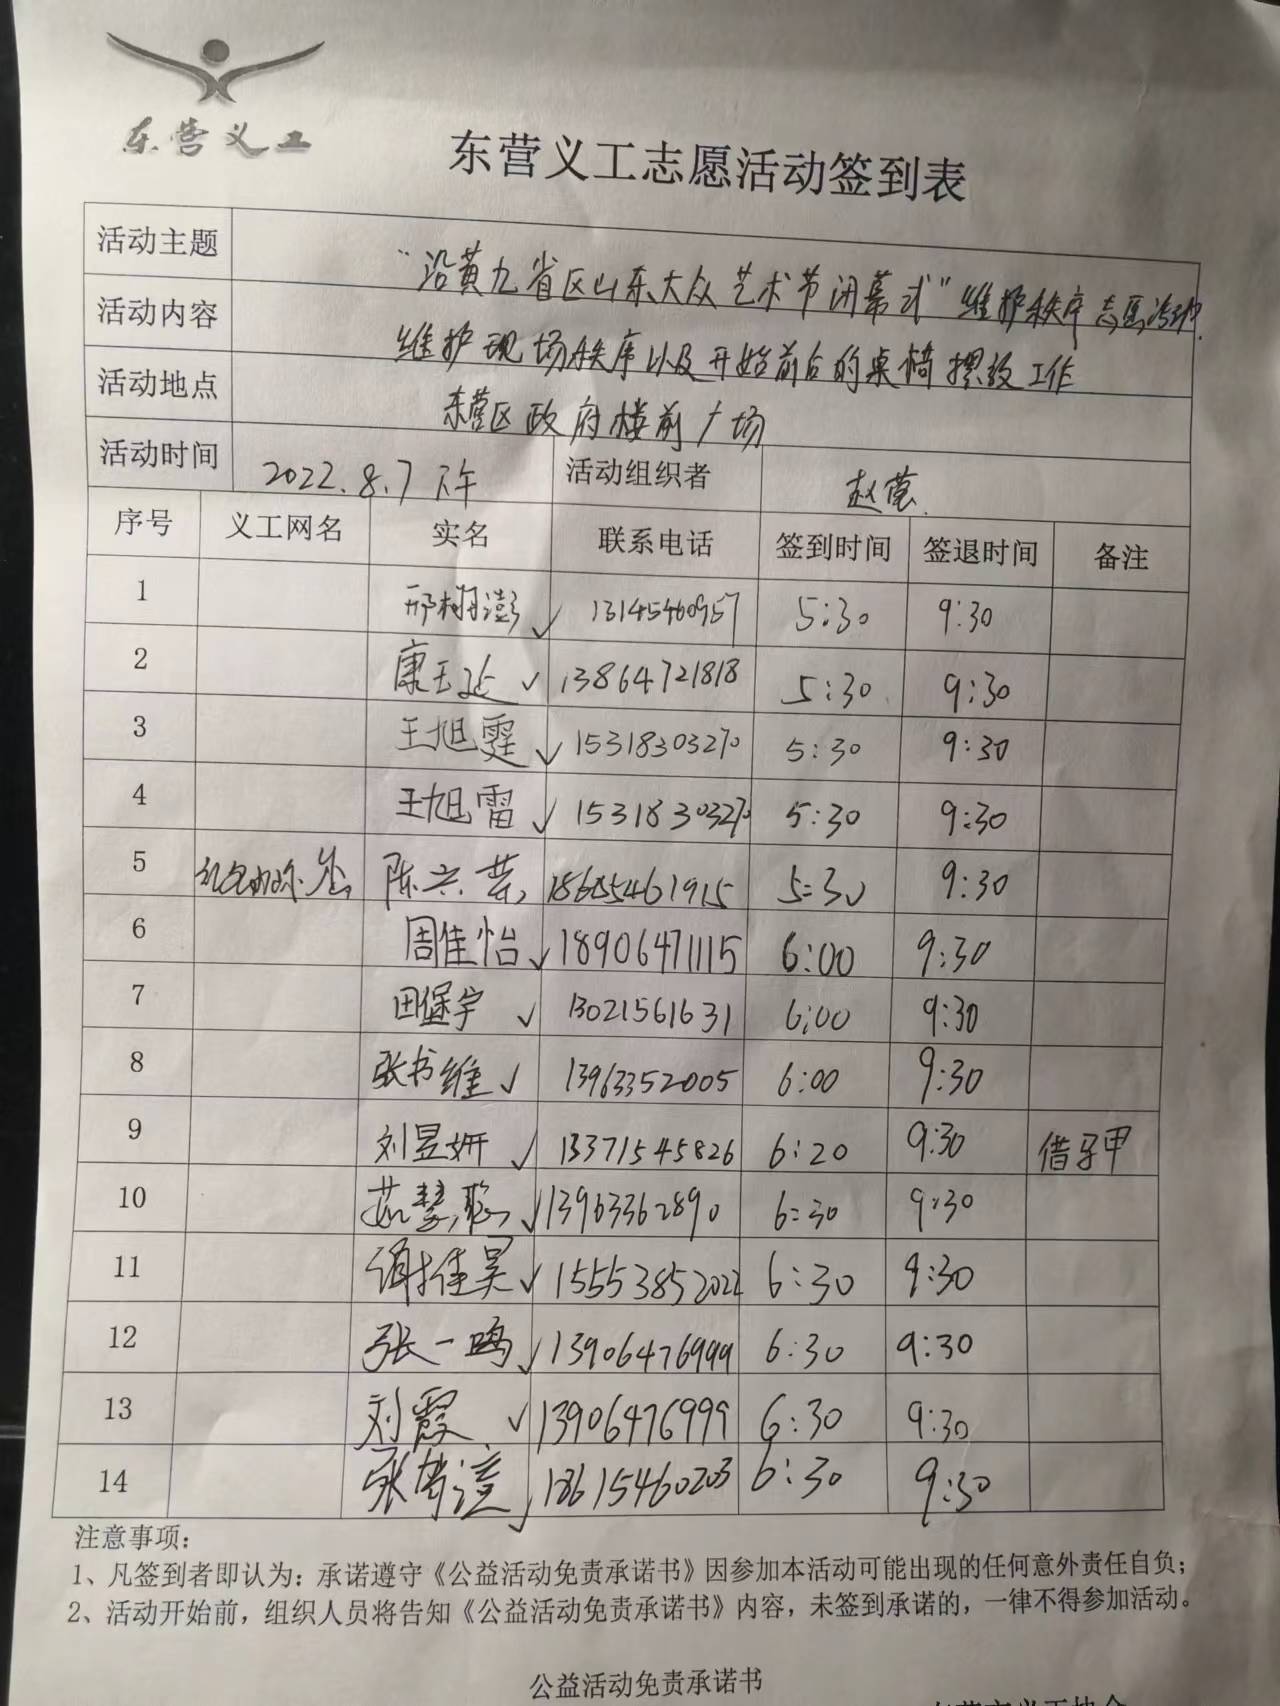 东营义工
东营义工志愿活动签到表
活动主题 “沿黄九省区山东大众艺术节闭幕式”维护秩序志愿活动
活动内容 维护现场秩序以及开始前后的桌椅摆放工作
活动地点 东营区政府楼前广场
活动时间 2022.8.7 下午 活动组织者 赵莹
序号 义工网名 实名 联系电话 签到时间 签退时间 备注
1 邢树澎 ✓ 13145460957 5:30 9:30
2 康玉延 ✓ 13864721818 5:30 9:30
3 王旭霆 ✓ 15318303270 5:30 9:30
4 王旭雷 ✓ 15318303270 5:30 9:30
5 陈兴荣 5:30 9:30
6 周佳怡 ✓ 18906471115 6:00 9:30
7 田堡宇 ✓ 13021561631 6:00 9:30
8 张书维 ✓ 13963352005 6:00 9:30
9 刘昱妍 ✓ 13371545826 6:20 9:30 借马甲
10 ✓ 13963362890 6:30 9:30
11 谢佳昊 ✓ 15553852022 6:30 9:30
12 张一鸣 ✓ 13906476999 6:30 9:30
13 刘霞 ✓ 13906476999 6:30 9:30
14 18615460203 6:30 9:30
注意事项：
1、凡签到者即认为：承诺遵守《公益活动免责承诺书》因参加本活动可能出现的任何意外责任自负；
2、活动开始前，组织人员将告知《公益活动免责承诺书》内容，未签到承诺的，一律不得参加活动。
公益活动免责承诺书